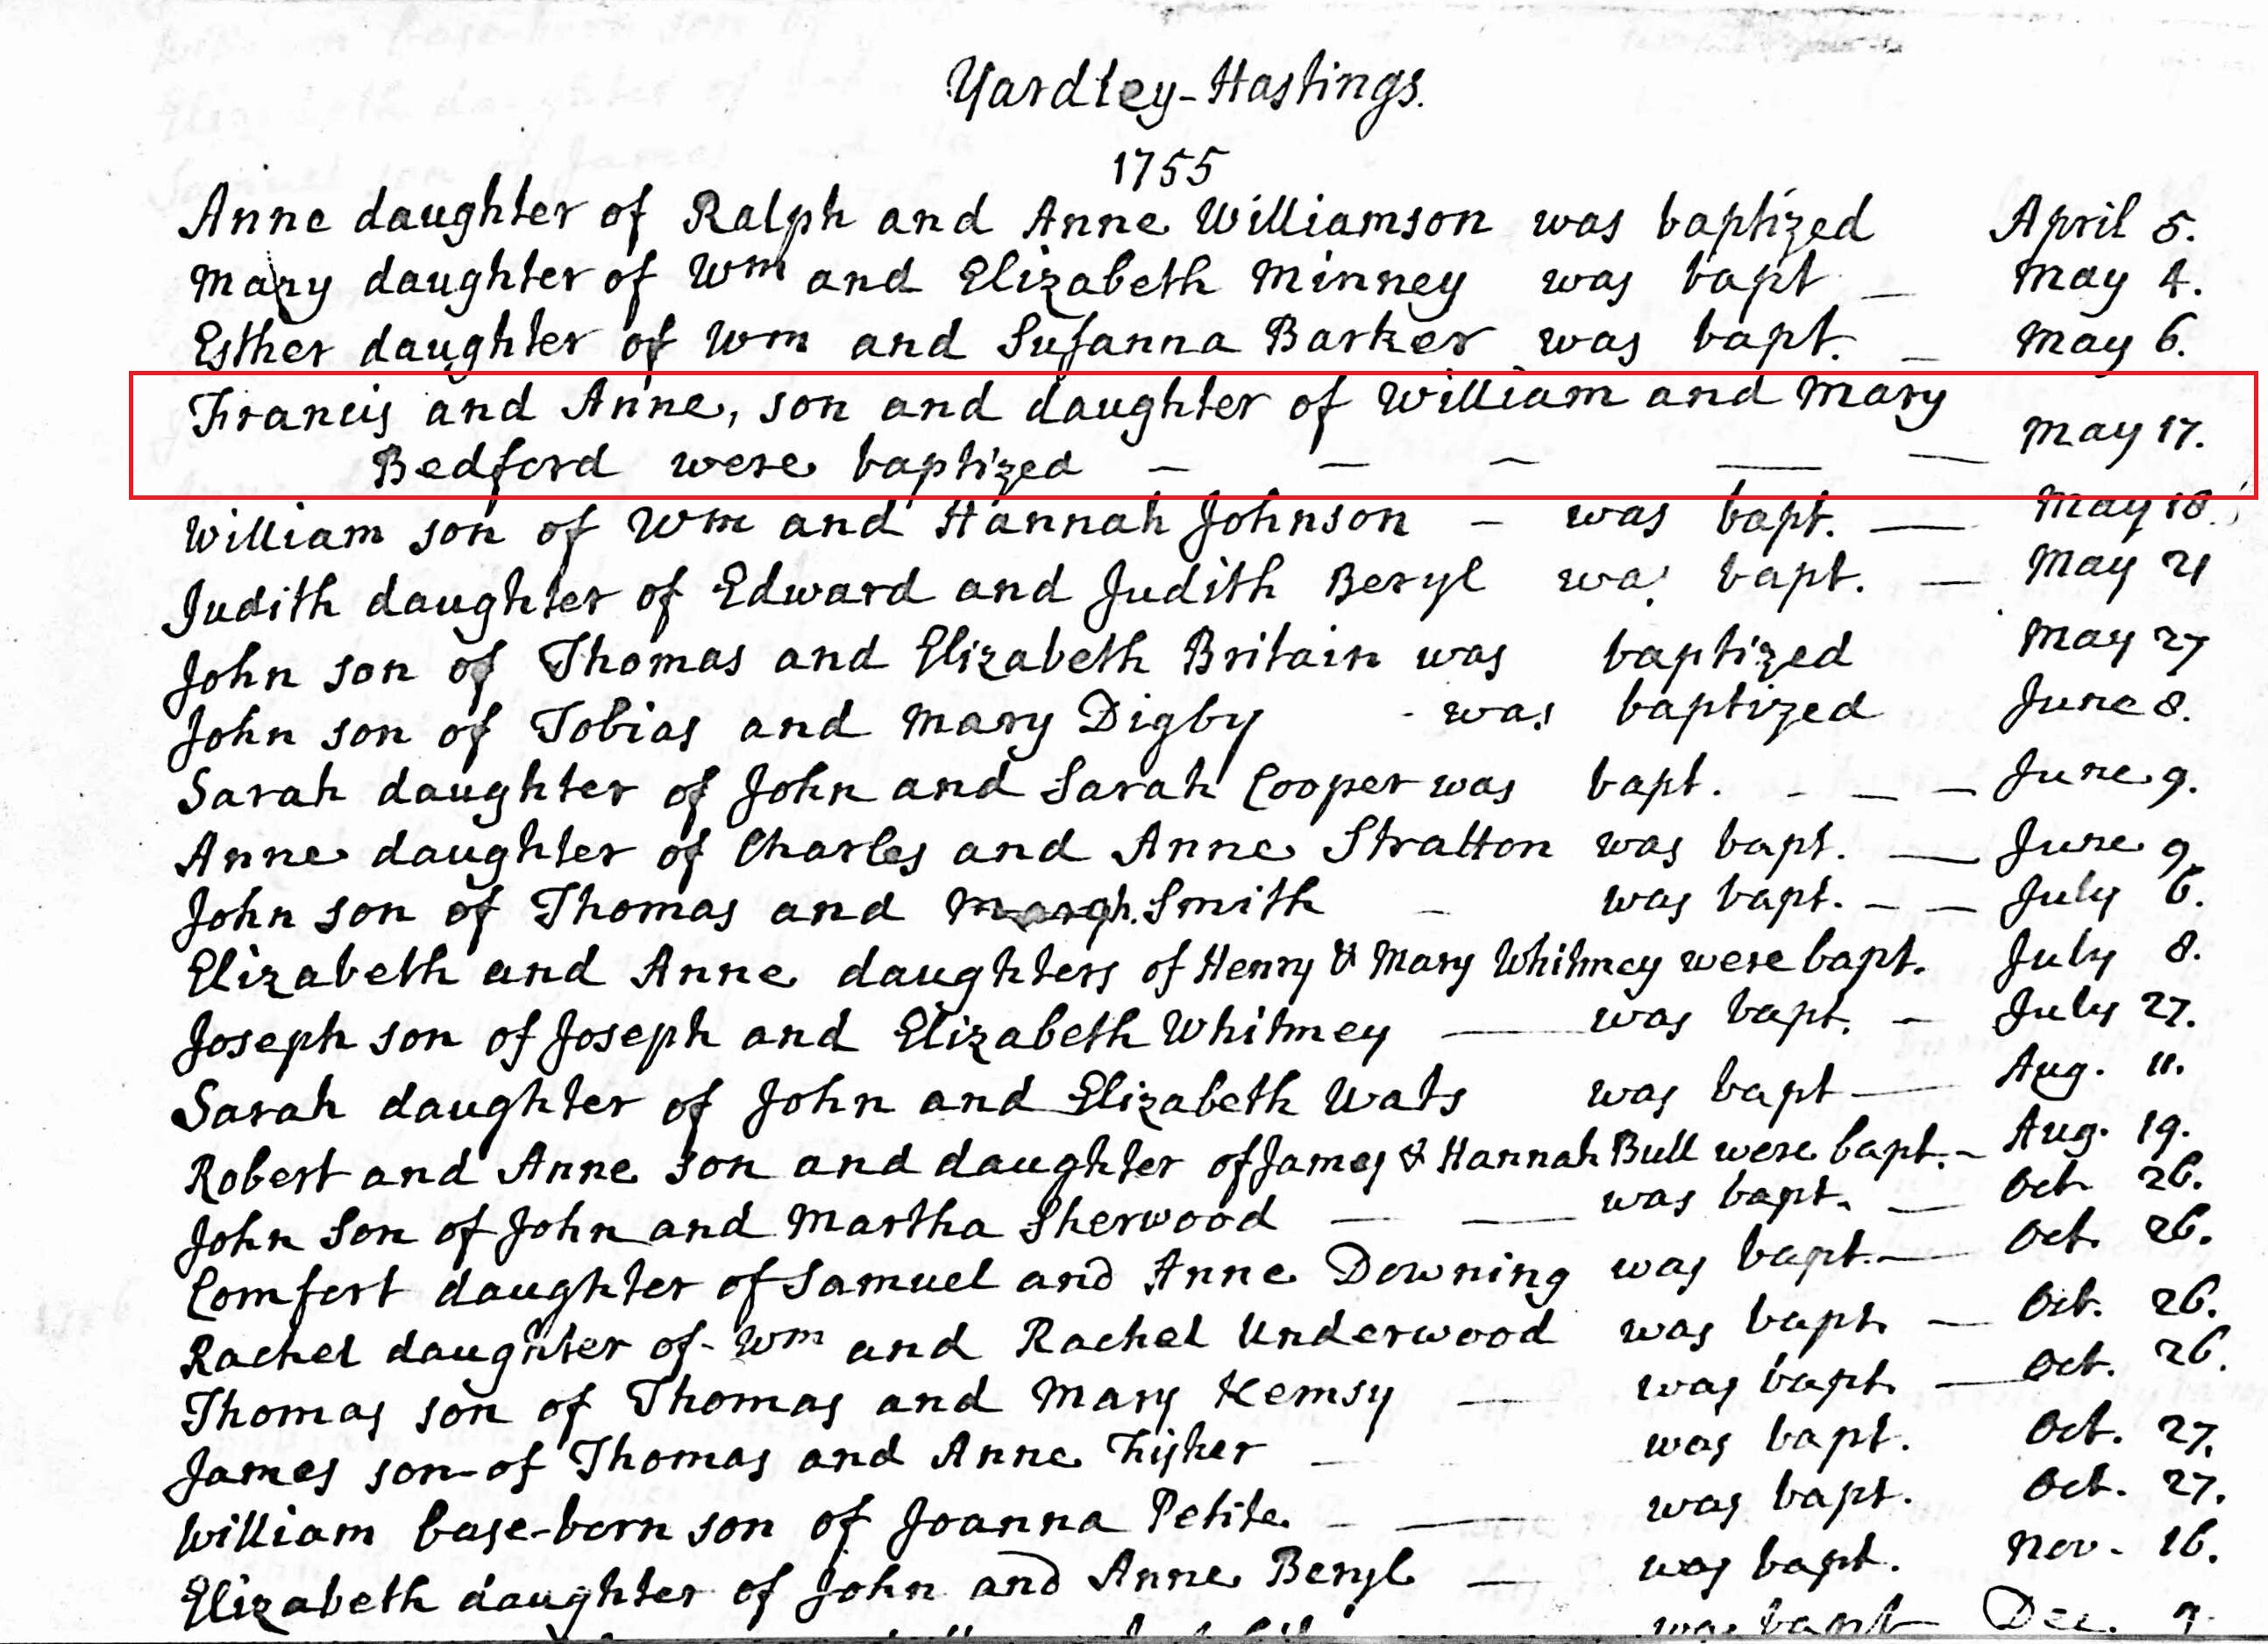 Yardley-Hastings.
1755
Anne daughter of Ralph and Anne Williamson was baptized April 5.
Mary daughter of Wm and Elizabeth Minney was bapt — May 4.
Esther daughter of Wm and Suſanna Barker was bapt. — May 6.
Francis and Anne, son and daughter of William and Mary
Bedford were baptized — — — — — May 17.
William son of Wm and Hannah Johnson — was bapt. — May 18.
Judith daughter of Edward and Judith Beryl was bapt. — May 21
John son of Thomas and Elizabeth Britain was baptized May 27
John son of Tobias and Mary Digby - was baptized June 8.
Sarah daughter of John and Sarah Cooper was bapt. - — — June 9.
Anne daughter of Charles and Anne Stratton was bapt. — June 9.
John son of Thomas and Smith — was bapt. — — July 6.
Elizabeth and Anne daughters of Henry & Mary Whitmey were bapt. July 8.
Joseph son of Joseph and Elizabeth Whitmey — was bapt. — July 27.
Sarah daughter of John and Elizabeth Wats was bapt — Aug. 11.
Robert and Anne son and daughter of James & Hannah Bull were bapt. — Aug. 19.
John Son of John and Martha Sherwood — — was bapt. — Oct 26.
Comfort daughter of Samuel and Anne Downing was bapt. — Oct. 26.
Rachel daughter of Wm and Rachel Underwood was bapt. — Oct. 26.
Thomas son of Thomas and Mary Kemsy — was bapt. — Oct. 26.
James son of Thomas and Anne Fisher — was bapt. Oct. 27.
William base-born son of Joanna Petite. — — was bapt. Oct. 27.
Elizabeth daughter of John and Anne Beryl — was bapt. Nov. 16.
was bapt Dec.